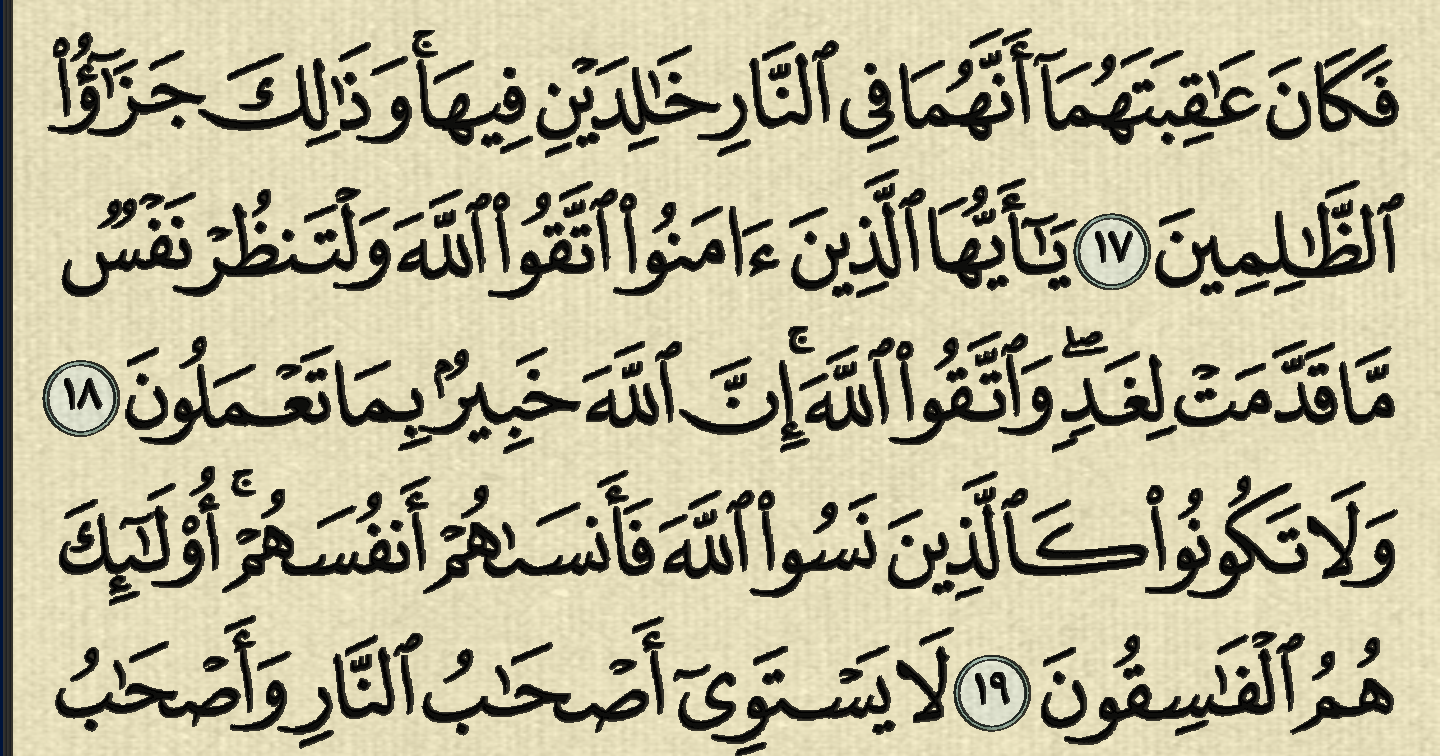 فَكَانَ عَٰقِبَتَهُمَآ أَنَّهُمَا فِى ٱلنَّارِ خَٰلِدَيْنِ فِيهَا ۚ وَذَٰلِكَ جَزَٰٓؤُا۟
ٱلظَّٰلِمِينَ ١٧ يَٰٓأَيُّهَا ٱلَّذِينَ ءَامَنُوا۟ ٱتَّقُوا۟ ٱللَّهَ وَلْتَنظُرْ نَفْسٌ
مَّا قَدَّمَتْ لِغَدٍ ۖ وَٱتَّقُوا۟ ٱللَّهَ ۚ إِنَّ ٱللَّهَ خَبِيرٌۢ بِمَا تَعْمَلُونَ ١٨
وَلَا تَكُونُوا۟ كَٱلَّذِينَ نَسُوا۟ ٱللَّهَ فَأَنسَىٰهُمْ أَنفُسَهُمْ ۚ أُو۟لَٰٓئِكَ
هُمُ ٱلْفَٰسِقُونَ ١٩ لَا يَسْتَوِىٓ أَصْحَٰبُ ٱلنَّارِ وَأَصْحَٰبُ